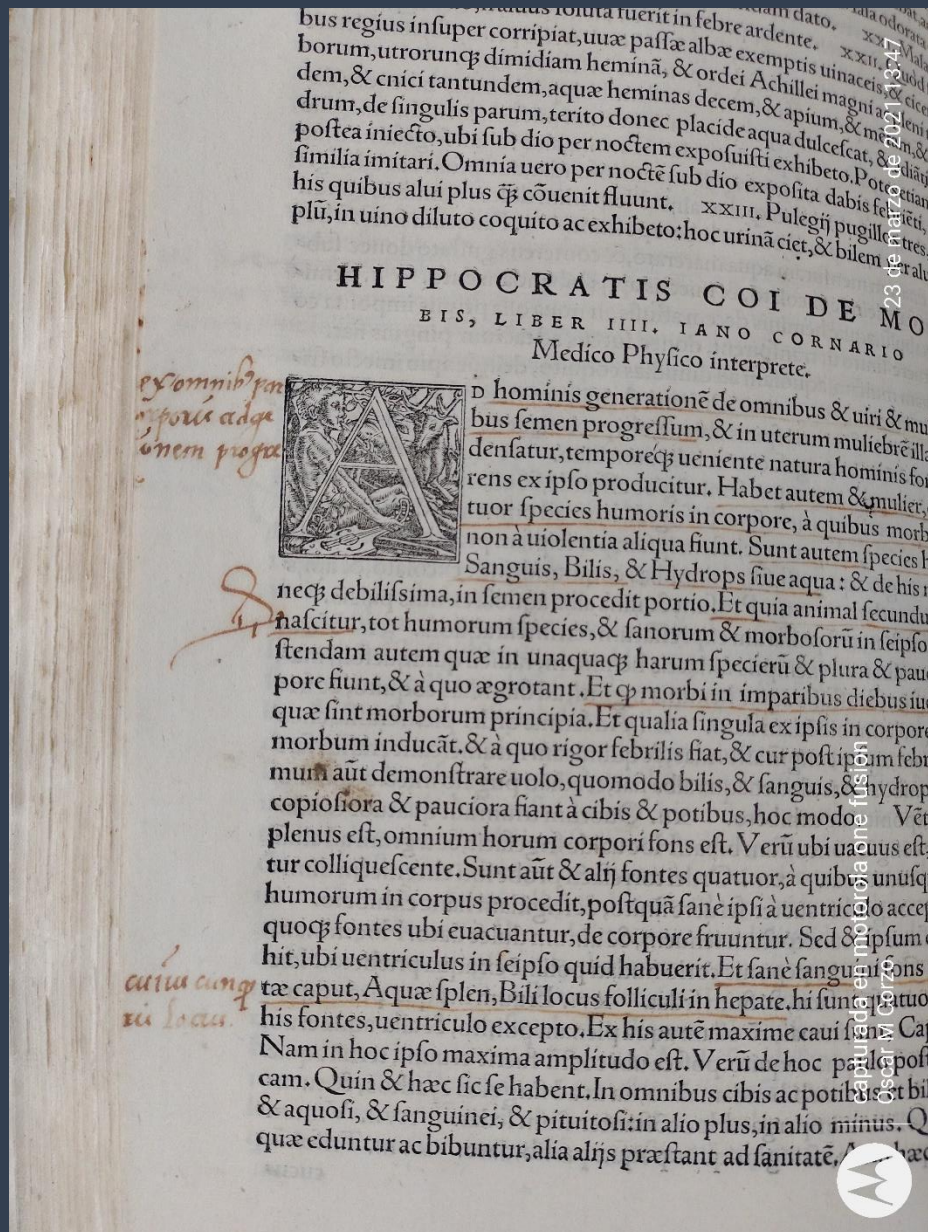 soluta fuerit in febre ardente. XXII. Quod
bus regius insuper corripiat, uuæ passæ albæ exemptis uinaceis, & cice
borum, utrorunqꝫ dimidiam heminã, & ordei Achillei magni
dem, & cnici tantundem, aquæ heminas decem, & apium, &
drum, de singulis parum, terito donec placide aqua dulcescat, &
postea iniecto, ubi sub dio per noctem exposuisti exhibeto. Poto etiam
similia imitari. Omnia uero per noctẽ sub dio exposita dabis
his quibus alui plus q̃ꝫ cõuenit fluunt. XXIII. Pulegij pugillos tres
plũ, in uino diluto coquito ac exhibeto: hoc urinã ciet, & bilem per alu
HIPPOCRATIS COI DE MO
BIS, LIBER IIII. IANO CORNARIO
Medico Physico interprete.
AD hominis generationẽ de omnibus & uiri & mu
bus semen progressum, & in uterum muliebrẽ illa
densatur, temporeqꝫ ueniente natura hominis for
rens ex ipso producitur. Habet autem & mulier,
tuor species humoris in corpore, à quibus morb
non à uiolentia aliqua fiunt. Sunt autem species h
Sanguis, Bilis, & Hydrops siue aqua: & de his
neqꝫ debilissima, in semen procedit portio. Et quia animal secundu
nascitur, tot humorum species, & sanorum & morbosorũ in seipso
stendam autem quæ in unaquaqꝫ harum specierũ & plura & pau
pore fiunt, & à quo ægrotant. Et ꝙ morbi in imparibus diebus iu
quæ sint morborum principia. Et qualia singula ex ipsis in corpore
morbum inducãt. & à quo rigor febrilis fiat, & cur post ipsum febr
mum aũt demonstrare uolo, quomodo bilis, & sanguis, & hydrop
copiosiora & pauciora fiant à cibis & potibus, hoc modo. Vẽt
plenus est, omnium horum corpori fons est. Verũ ubi uacuus est,
tur colliquescente. Sunt aũt & alij fontes quatuor, à quibus unusq
humorum in corpus procedit, postquã sanè ipsi à uentriculo accep
quoqꝫ fontes ubi euacuantur, de corpore fruuntur. Sed & ipsum
hit, ubi uentriculus in seipso quid habuerit. Et sanè sanguini fons
tæ caput, Aquæ splen, Bili locus folliculi in hepate. hi sunt quatuo
his fontes, uentriculo excepto. Ex his autẽ maxime caui sunt Cap
Nam in hoc ipso maxima amplitudo est. Verũ de hoc paulò post
cam. Quin & hæc sic se habent. In omnibus cibis ac potibus et bi
& aquosi, & sanguinei, & pituitosi: in alio plus, in alio minus. Q
quæ eduntur ac bibuntur, alia alijs præstant ad sanitatẽ.
ex omnibꝰ par
cuius cunqꝫ
locus.
23 de marzo de 2021 13:47
capturada en motorola one fusion
Oscar M Corzo.